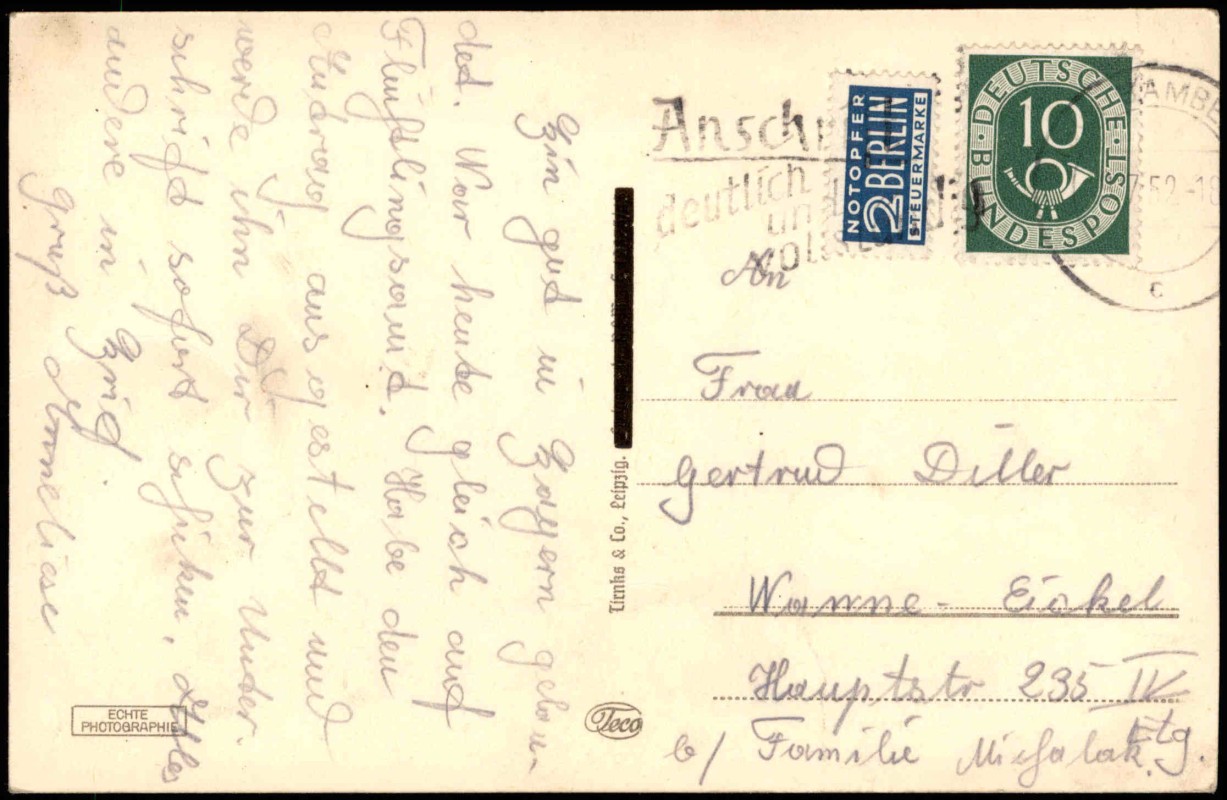 Bin gut in Bayern gelan-
det. War heute gleich auf
Flüchtlingsamt. Habe den
Antrag ausgestellt und
werde ihn Dir zur Under-
schrift sofort schiken. Alles
andere in Brief
Gruß Anneliese
ECHTE
PHOTOGRAPHIE
Tienks & Co., Leipzig.
Teco
Anschrift
deutlich
und
vollständig
NOTOPFER
2 BERLIN
STEUERMARKE
DEUTSCHE
BUNDESPOST
10
AMBE
7.52.-18
c
An
Frau
Gertrud Diller
Wanne-Eickel
Hauptstr 235 IV
Etg.
b/ Familie Michalak.